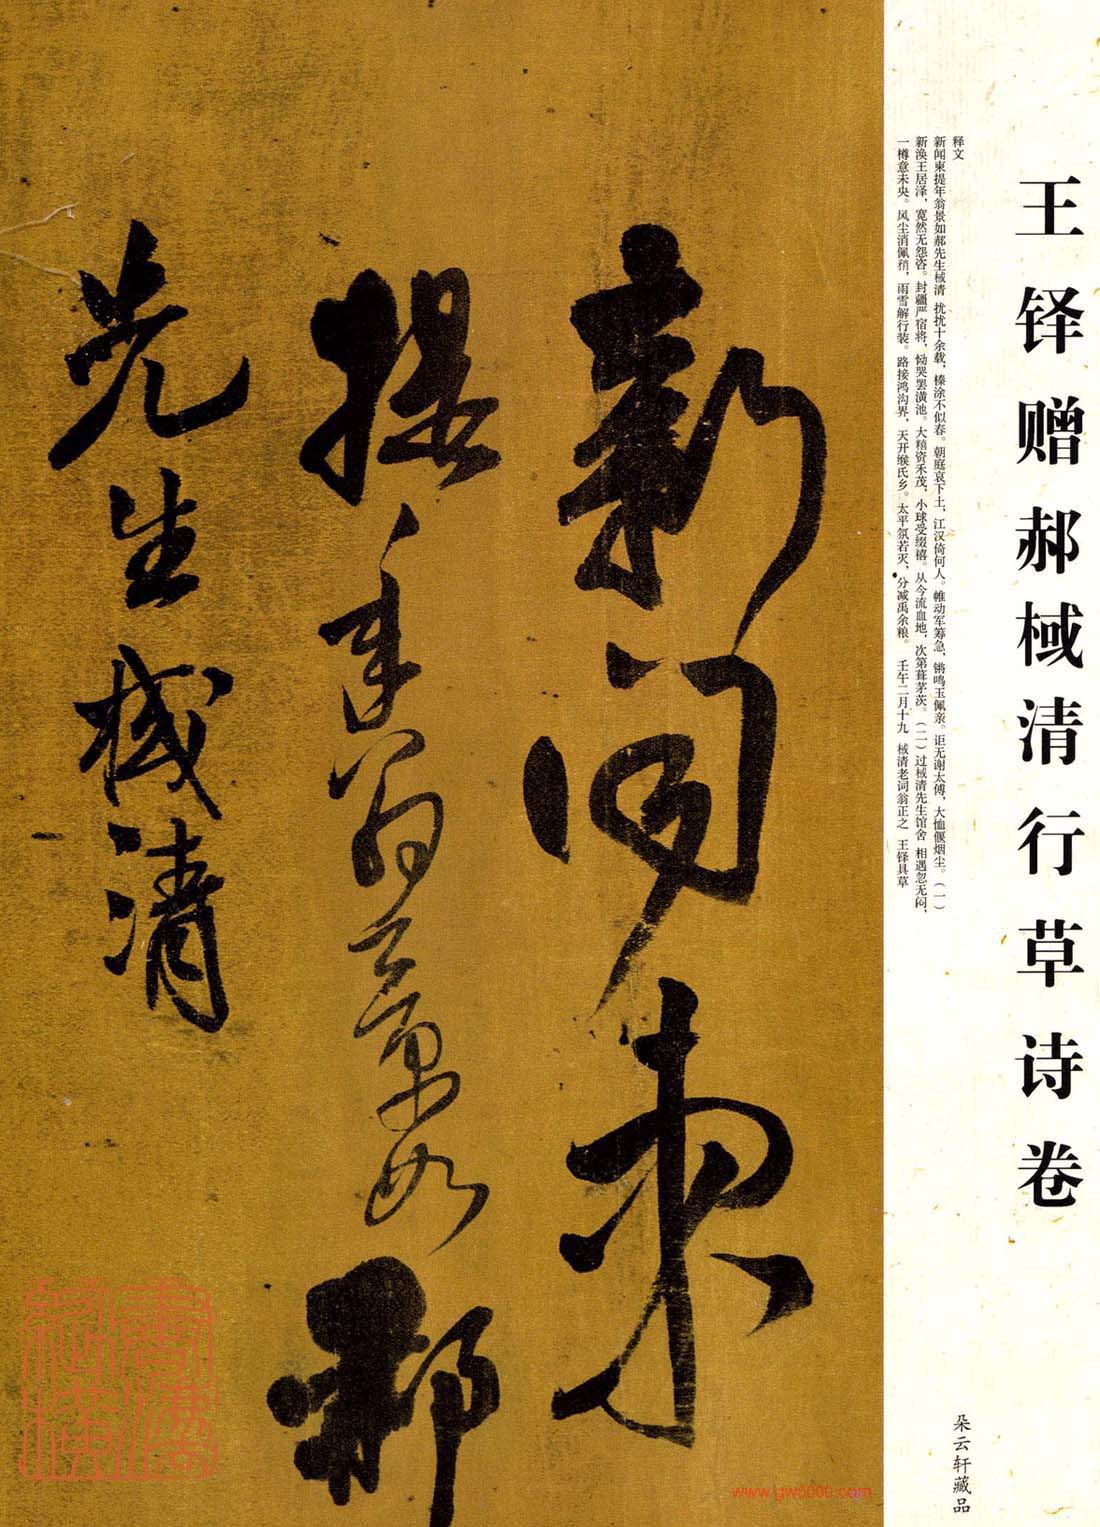 王铎赠郝棫清行草诗卷
朵云轩藏品
释文
新闻柬提年翁景如郝先生棫清 扰扰十余载，榛涂不似春。朝庭哀下土，江汉倚何人。帷动军筹急，锵鸣玉佩亲。讵无谢太傅，大恤偃烟尘。（一）
新涣王居泽，宽然无怨咨。封疆严宿将，恸哭罢潢池。大精资禾茂，小球受缀禧。从今流血地，次第葺茅茨。（二）过棫清先生馆舍 相遇忽无闷，
一樽意未央。风尘消佩矟，雨雪解行装。路接鸿沟界，天开缑氏乡。太平氛若灭，分减禹余粮。 壬午二月十九 棫清老词翁正之 王铎具草
新闻柬
提年翁景如郝
先生棫清
www.gw8000.com